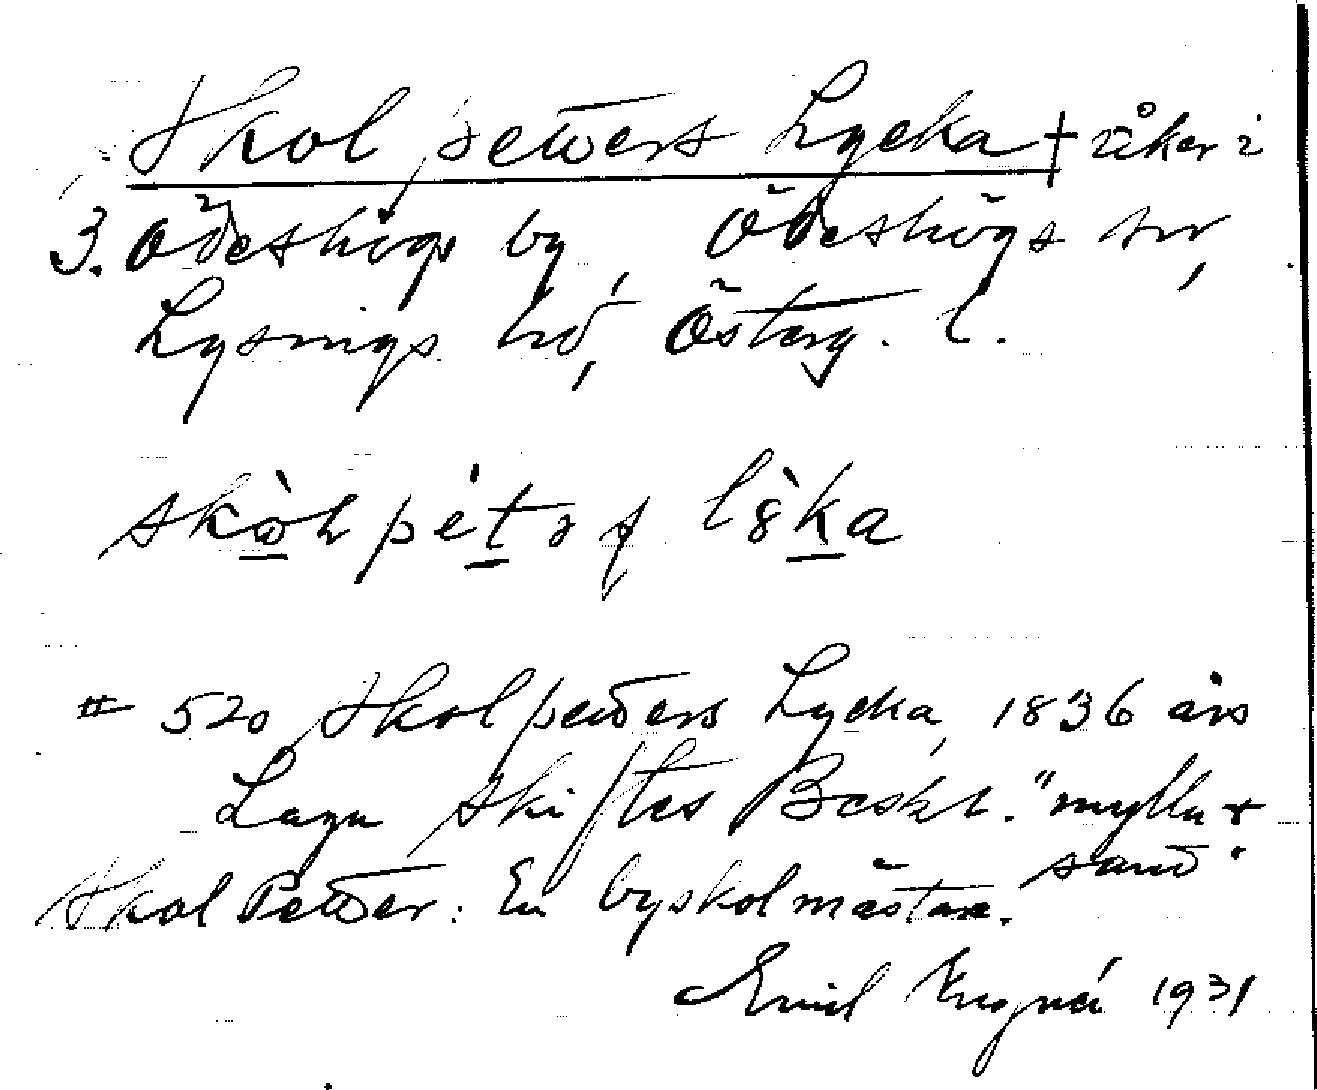 Skolpetters Lycka † åker i
3. Ödeshögs by, Ödeshögs sn,
Lysings hd, Österg. l.
# 520 Skolpetters Lycka, 1836 års
Laga Skiftes Beskr. "mylla &
sand".
Skol Petter: En byskolmästare.
Emil 1931